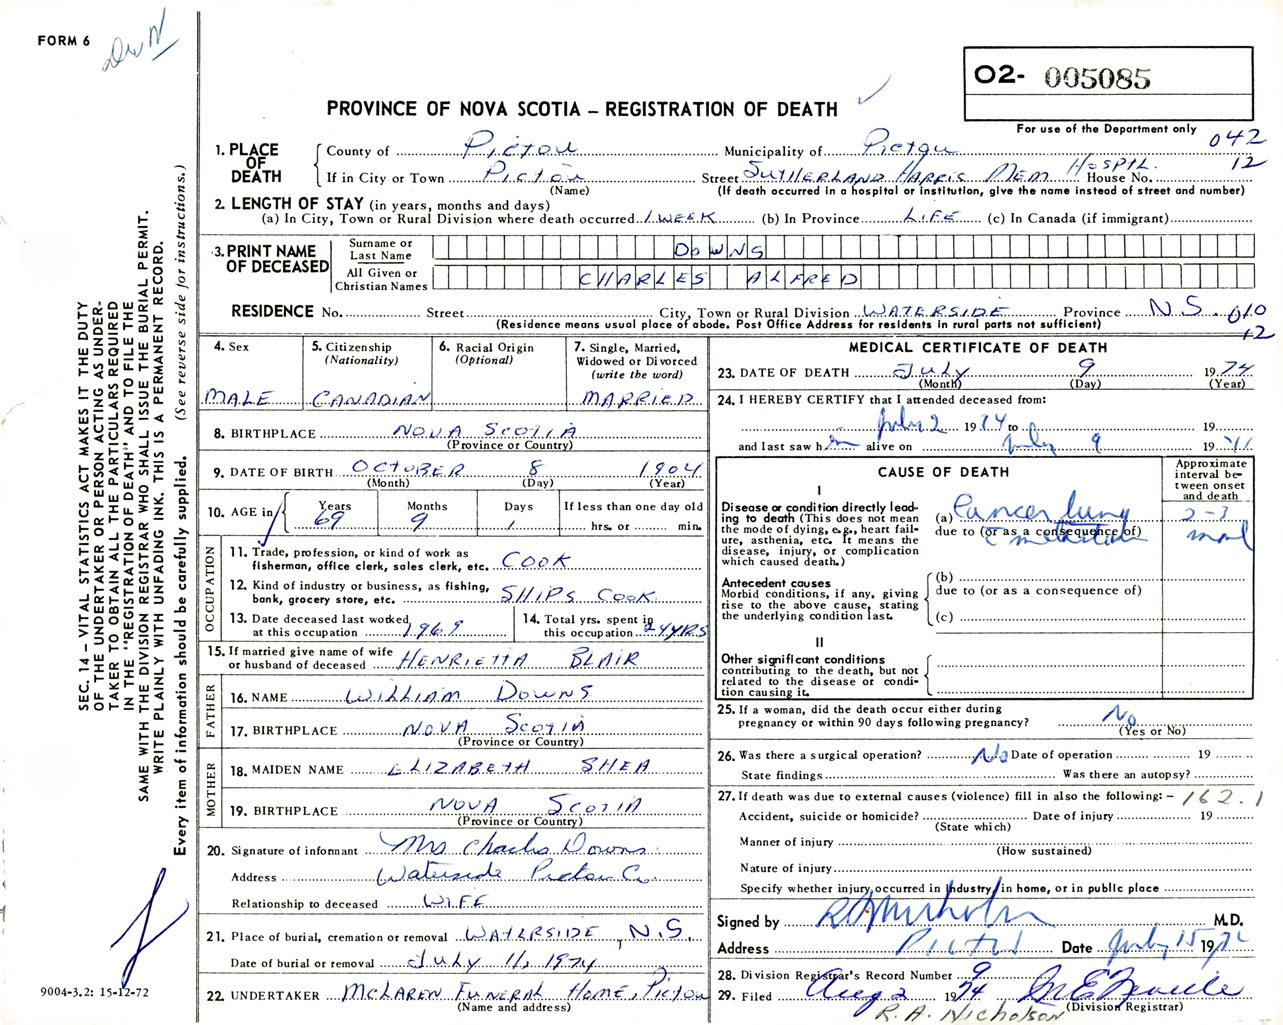 FORM 6
O2- 005085
PROVINCE OF NOVA SCOTIA – REGISTRATION OF DEATH
For use of the Department only
042
12
1. PLACE OF DEATH
County of Pictou Municipality of Pictou
If in City or Town Pictou Street SUTHERLAND HARRIS MEM HOSPTL. House No.
(Name) (If death occurred in a hospital or institution, give the name instead of street and number)
2. LENGTH OF STAY (in years, months and days)
(a) In City, Town or Rural Division where death occurred 1 WEEK (b) In Province LIFE (c) In Canada (if immigrant)
3. PRINT NAME OF DECEASED
Surname or Last Name DOWNS
All Given or Christian Names CHARLES ALFRED
RESIDENCE No. Street City, Town or Rural Division WATERSIDE Province N.S. 010
12
(Residence means usual place of abode. Post Office Address for residents in rural parts not sufficient)
4. Sex
MALE
5. Citizenship
(Nationality)
CANADIAN
6. Racial Origin
(Optional)
7. Single, Married,
Widowed or Divorced
(write the word)
MARRIED
8. BIRTHPLACE NOVA SCOTIA
(Province or Country)
9. DATE OF BIRTH OCTOBER 8 1904
(Month) (Day) (Year)
10. AGE in Years Months Days If less than one day old
69 9 1 hrs. or min.
OCCUPATION
11. Trade, profession, or kind of work as
fisherman, office clerk, sales clerk, etc. COOK
12. Kind of industry or business, as fishing,
bank, grocery store, etc. SHIPS COOK
13. Date deceased last worked
at this occupation 1969
14. Total yrs. spent in
this occupation 24 YRS
15. If married give name of wife
or husband of deceased HENRIETTA BLAIR
FATHER
16. NAME WILLIAM DOWNS
17. BIRTHPLACE NOVA SCOTIA
(Province or Country)
MOTHER
18. MAIDEN NAME ELIZABETH SHEA
19. BIRTHPLACE NOVA SCOTIA
(Province or Country)
20. Signature of informant Mrs Charles Downs
Address Waterside Pictou Co.
Relationship to deceased WIFE
21. Place of burial, cremation or removal WATERSIDE, N.S.
Date of burial or removal JULY 11, 1974
22. UNDERTAKER McLAREN FUNERAL HOME, Pictou
(Name and address)
MEDICAL CERTIFICATE OF DEATH
23. DATE OF DEATH JULY 9 1974
(Month) (Day) (Year)
24. I HEREBY CERTIFY that I attended deceased from:
July 2 1974 to 19
and last saw him alive on July 9 1974
CAUSE OF DEATH
Approximate interval between onset and death
I
Disease or condition directly lead-
ing to death (This does not mean
the mode of dying, e.g., heart fail-
ure, asthenia, etc. It means the
disease, injury, or complication
which caused death.)
(a) Cancer lung 2-3
due to (or as a consequence of)
Antecedent causes
Morbid conditions, if any, giving
rise to the above cause, stating
the underlying condition last.
(b)
due to (or as a consequence of)
(c)
II
Other significant conditions
contributing to the death, but not
related to the disease or condi-
tion causing it.
25. If a woman, did the death occur either during
pregnancy or within 90 days following pregnancy? No
(Yes or No)
26. Was there a surgical operation? No Date of operation 19
State findings Was there an autopsy?
27. If death was due to external causes (violence) fill in also the following: – 162.1
Accident, suicide or homicide? Date of injury 19
(State which)
Manner of injury
(How sustained)
Nature of injury
Specify whether injury occurred in industry, in home, or in public place
Signed by M.D.
Address Pictou Date July 15 1974
28. Division Registrar's Record Number 9
29. Filed Aug 2 1974
(Division Registrar)
R. A. Nicholson
SEC. 14 – VITAL STATISTICS ACT MAKES IT THE DUTY
OF THE UNDERTAKER OR PERSON ACTING AS UNDER-
TAKER TO OBTAIN ALL THE PARTICULARS REQUIRED
IN THE "REGISTRATION OF DEATH" AND TO FILE THE
SAME WITH THE DIVISION REGISTRAR WHO SHALL ISSUE THE BURIAL PERMIT.
WRITE PLAINLY WITH UNFADING INK. THIS IS A PERMANENT RECORD.
Every item of information should be carefully supplied. (See reverse side for instructions.)
9004-3.2: 15-12-72